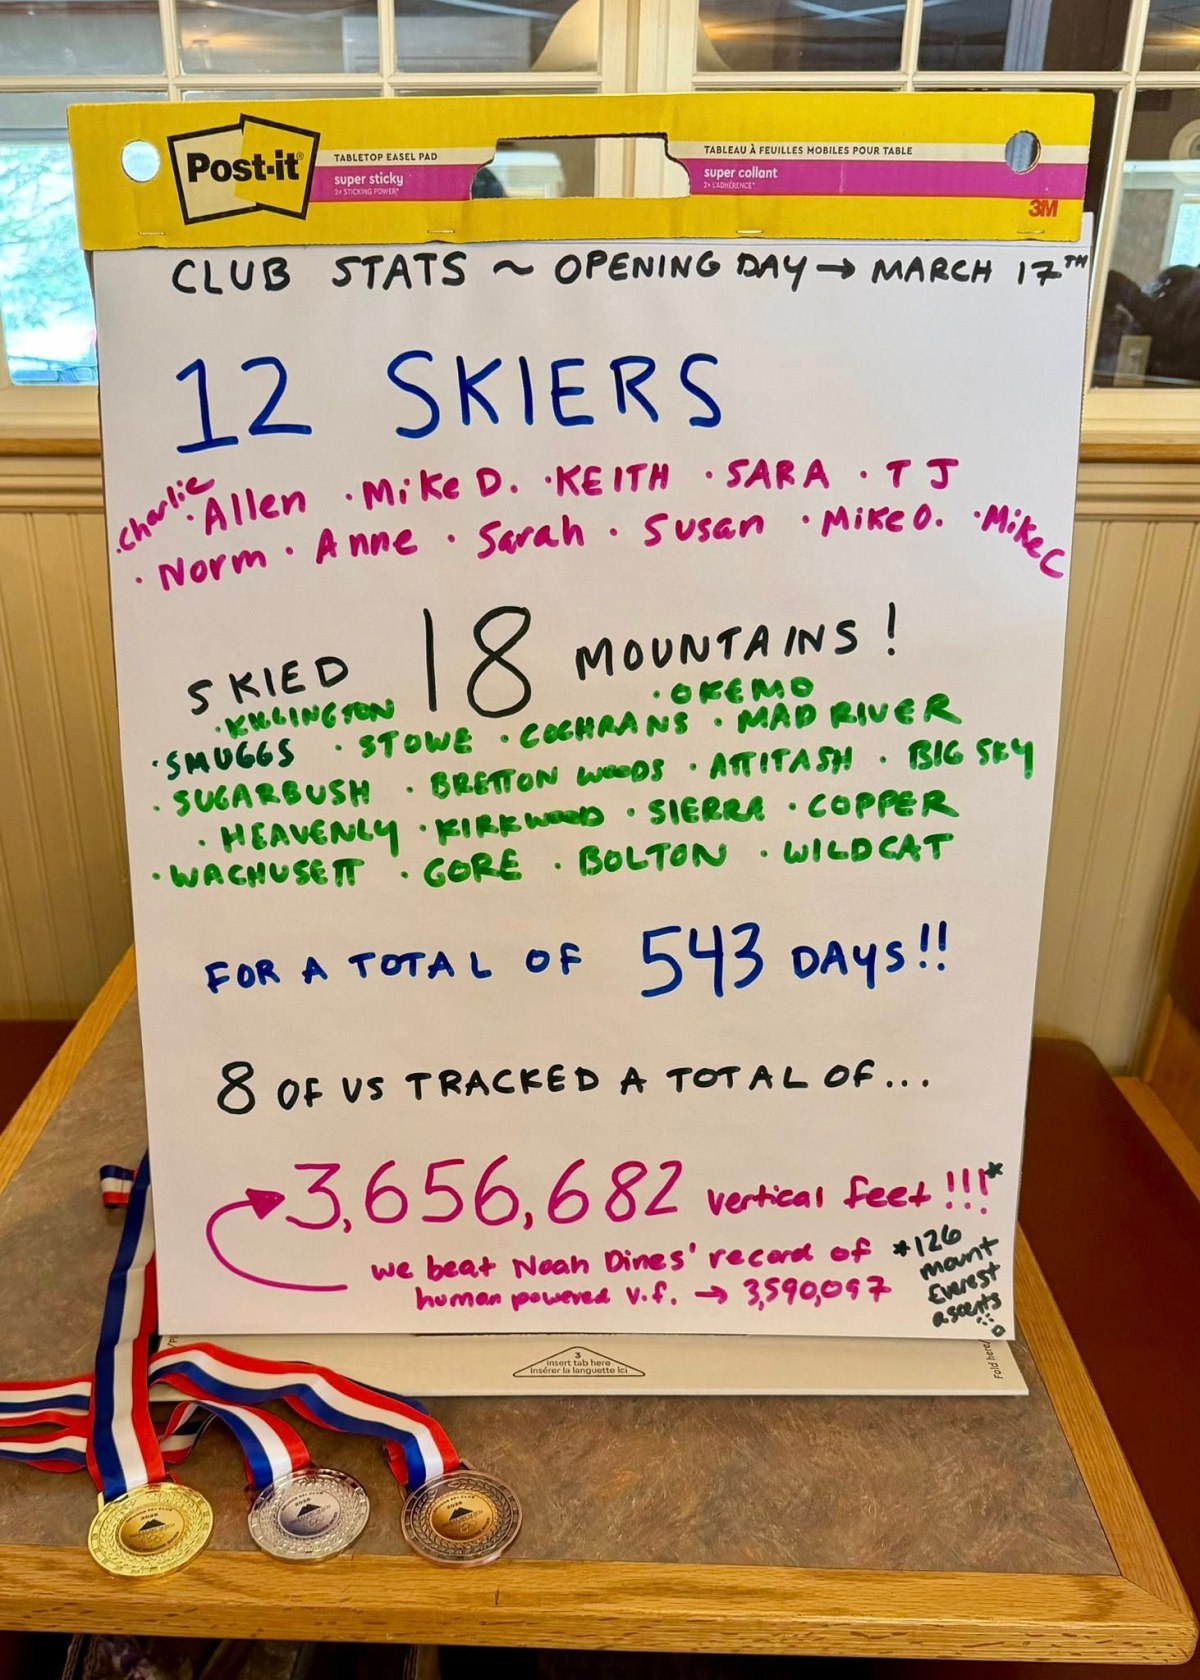 Post-it®
TABLETOP EASEL PAD
super sticky
2x STICKING POWER*
TABLEAU À FEUILLES MOBILES POUR TABLE
super collant
2x L'ADHÉRENCE*
3M
CLUB STATS ~ OPENING DAY → MARCH 17TH
12 SKIERS
· Charlie · Allen · Mike D. · KEITH · SARA · TJ
· Norm · Anne · Sarah · Susan · Mike O. · Mike C
SKIED 18 MOUNTAINS!
· KILLINGTON · OKEMO
· SMUGGS · STOWE · COCHRANS · MAD RIVER
· SUGARBUSH · BRETTON WOODS · ATTITASH · BIG SKY
· HEAVENLY · KIRKWOOD · SIERRA · COPPER
· WACHUSETT · GORE · BOLTON · WILDCAT
FOR A TOTAL OF 543 DAYS!!
8 OF US TRACKED A TOTAL OF...
3,656,682 vertical feet!!!*
we beat Noah Dines' record of
human powered v.f. → 3,590,097
*126
mount
Everest
ascents
!!
3
insert tab here
insérer la languette ici
Fold here/
2026
2026
2026